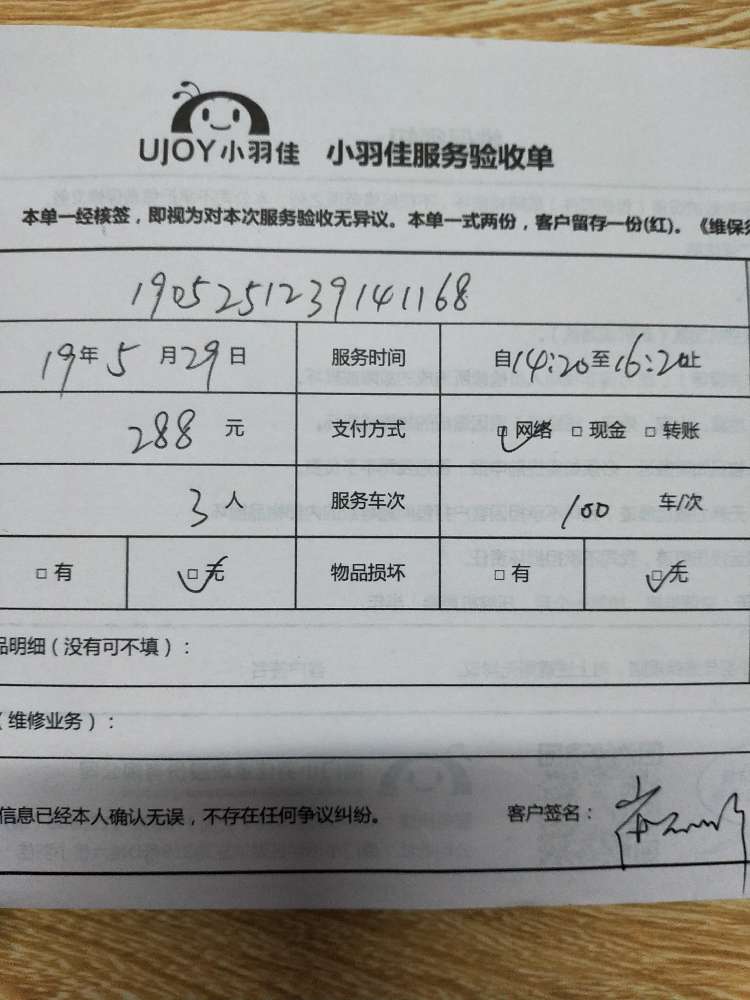 UJOY小羽佳 小羽佳服务验收单
本单一经核签，即视为对本次服务验收无异议。本单一式两份，客户留存一份(红)。《维保须
1905251239141168
19年5月29日 服务时间 自14:20至16:20止
288元 支付方式 □网络 □现金 □转账
3人 服务车次 100 车/次
□有 □无 物品损坏 □有 □无
品明细（没有可不填）：
（维修业务）：
信息已经本人确认无误，不存在任何争议纠纷。 客户签名：